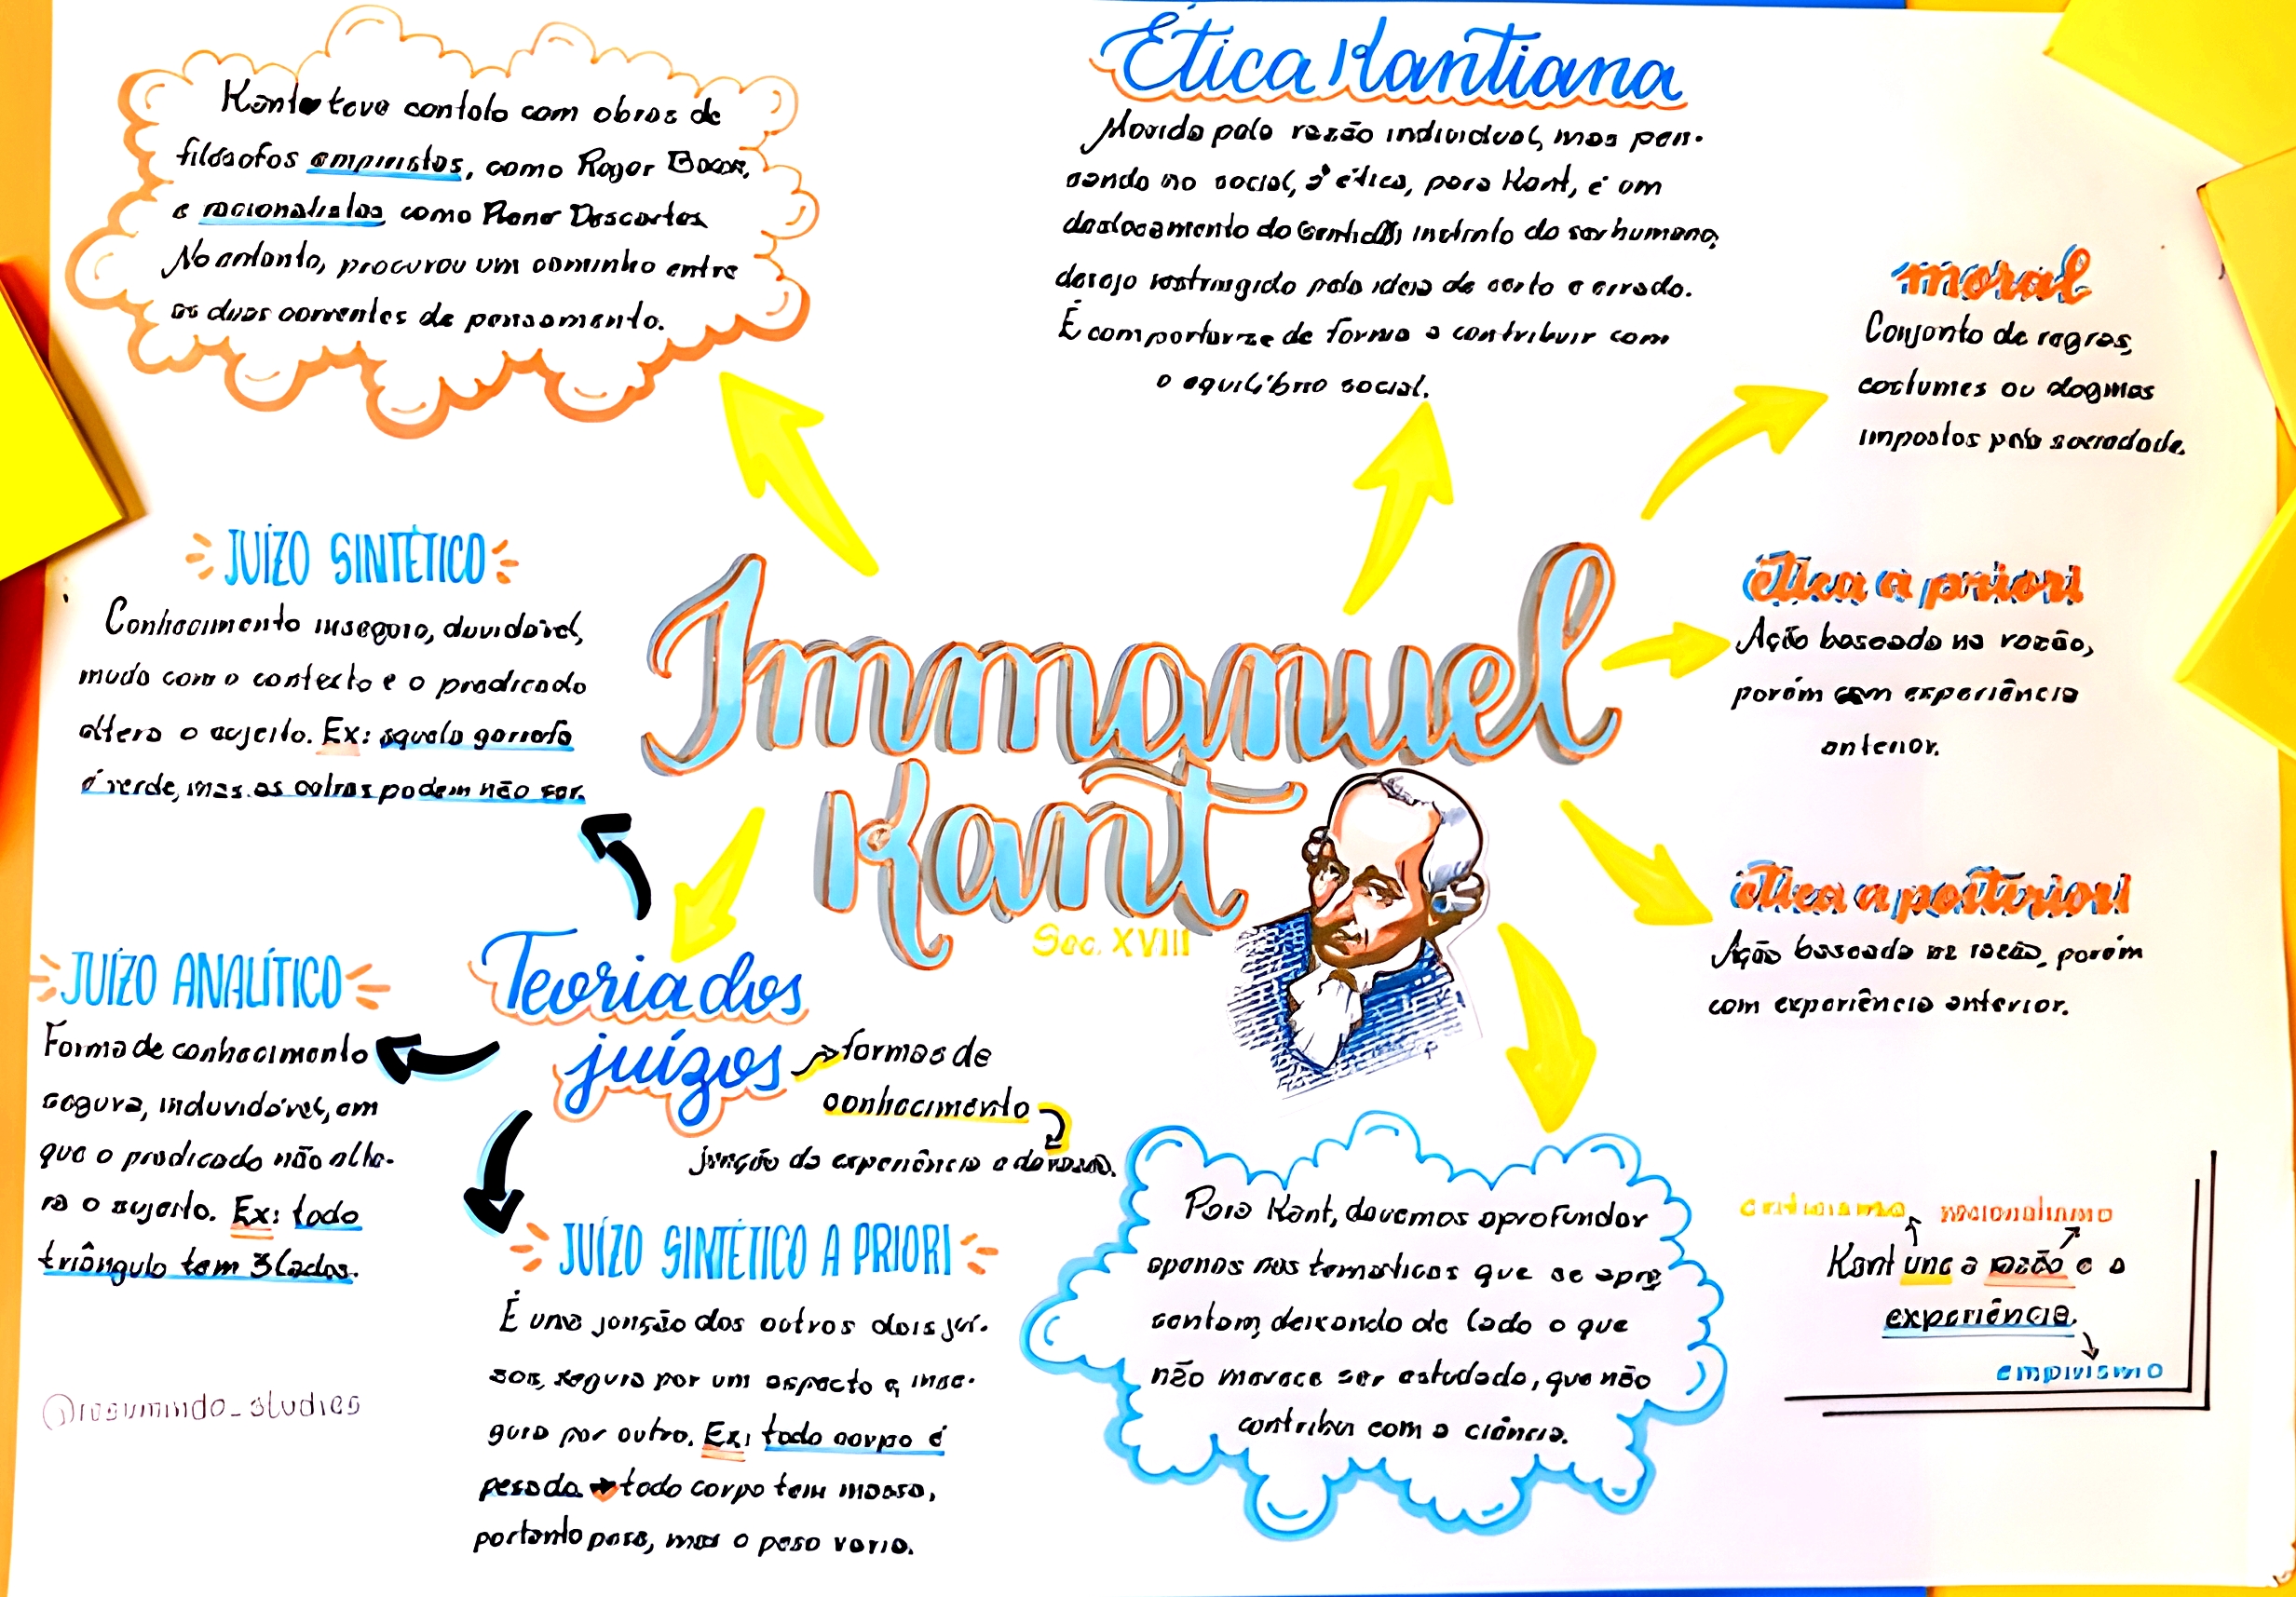 Kant teve contato com obras de
filósofos empiristas, como Roger Bacon,
e racionalistas como René Descartes
No entanto, procurou um caminho entre
as duas correntes de pensamento.
Ética Kantiana
Movida pela razão individual, mas pen-
sando no social, a ética, para Kant, é um
deslocamento do instinto do ser humano,
desejo restringido pela ideia de certo e errado.
É comportar-se de forma a contribuir com
o equilíbrio social.
moral
Conjunto de regras,
costumes ou dogmas
impostos pela sociedade.
ética a priori
Ação baseada na razão,
porém com experiência
anterior.
ética a posteriori
Ação baseada na razão, porém
com experiência anterior.
Immanuel
Kant
Sec. XVIII
JUÍZO SINTÉTICO
Conhecimento inseguro, duvidável,
muda com o contexto e o predicado
altera o sujeito. Ex: aquela garrafa
é verde, mas as outras podem não ser.
JUÍZO ANALÍTICO
Forma de conhecimento
segura, induvidável, em
que o predicado não alte-
ra o sujeito. Ex: todo
triângulo tem 3 lados.
Teoria dos
juízos
formas de
conhecimento
junção da experiência e da razão.
JUÍZO SINTÉTICO A PRIORI
É uma junção dos outros dois juí-
zos, segura por um aspecto e inse-
gura por outro. Ex: todo corpo é
pesado → todo corpo tem massa,
portanto pesa, mas o peso varia.
Para Kant, devemos aprofundar
apenas nas temáticas que se apre
sentam, deixando de lado o que
não merece ser estudado, que não
contribui com a ciência.
criticismo racionalismo
Kant une a razão e a
experiência.
empirismo
@resumindo_studies